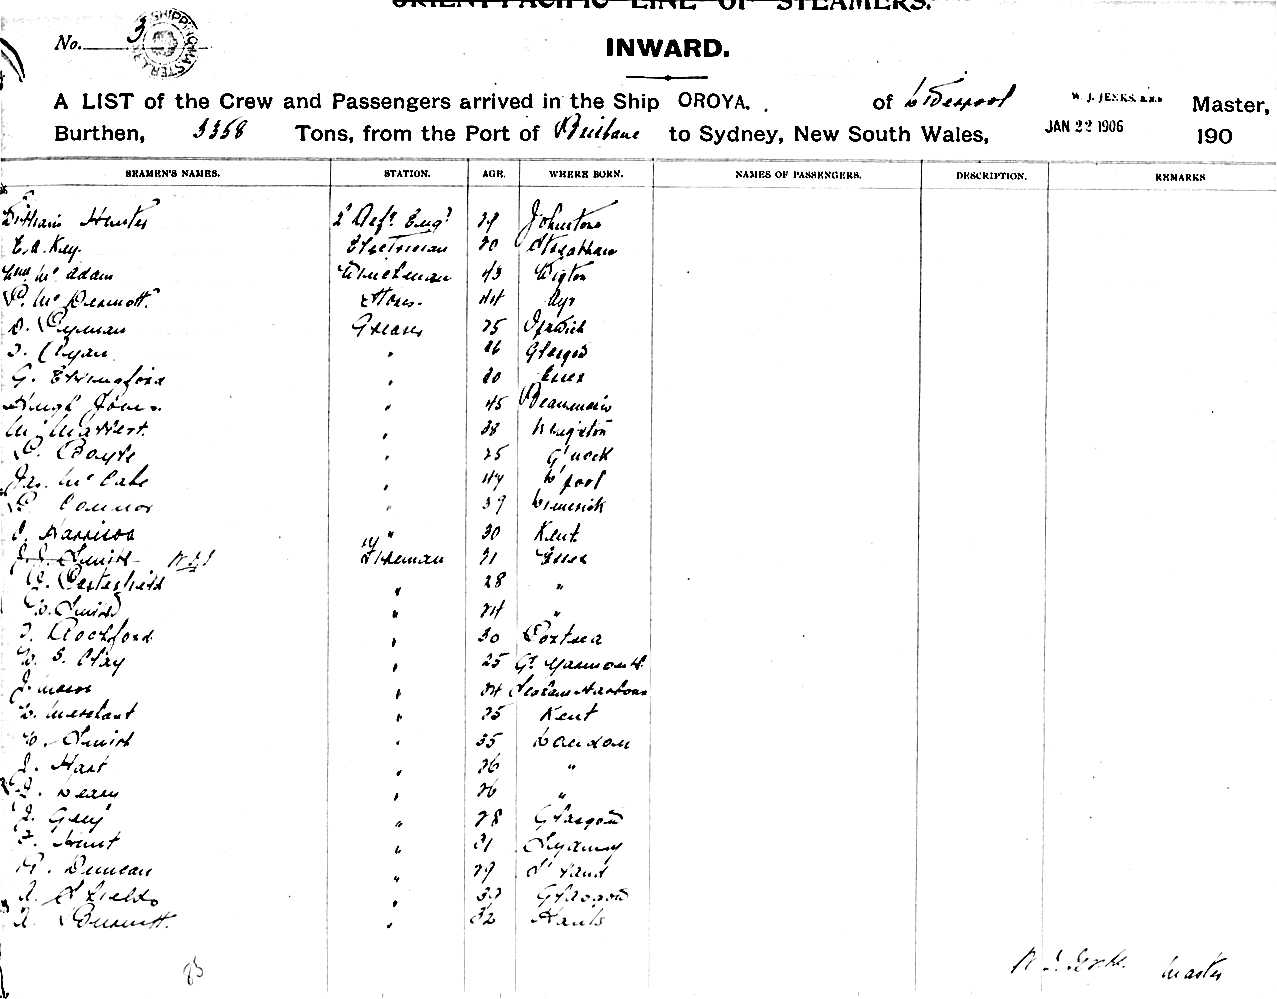 ORIENT-PACIFIC LINE OF STEAMERS.
No. 3
SHIPPING MASTER
INWARD.
A LIST of the Crew and Passengers arrived in the Ship OROYA. of L'Verpool W. J. JENKS, Master,
Burthen, 3358 Tons, from the Port of Brisbane to Sydney, New South Wales, JAN 22 1906 190
SEAMEN'S NAMES. STATION. AGE. WHERE BORN. NAMES OF PASSENGERS. DESCRIPTION. REMARKS
William Hunter 2' Refr Engr 29 Johnstone
E. A. Key. Electrician 20 Streatham
Wm Mc Adam Winchman 43 Wigton
P. McDermott. Stores. 44 Ayr
D. Pyman Greaser 25 Ipswich
J. Ryan " 26 Glasgow
G. Hungerford " 30 Essex
Hugh Jones " 45 Beaumaris
W. " 38
P. Boyle " 25 G'nock
Jas. McCabe " 47 L'pool
P. Connor " 39 Limerick
J. Harrison " 30 Kent
J. J. Smith Fireman 21 Essex
" 28 "
W. Smith " 24 "
J. Rochford " 30 Portsea
W. S. Clay " 25 Gt. Yarmouth
J. Mason " 24 Seaham Harbour
W. Merchant " 25 Kent
W. Smith " 35 London
J. Hart " 26 "
J. Leary " 26 "
J. Grey " 28 Glasgow
F. Hunt " 21 Sydney
R. Duncan " 29
A. Shields " Glasgow
A. Bennett. " 32 Hants
W. J. Jenks. Master